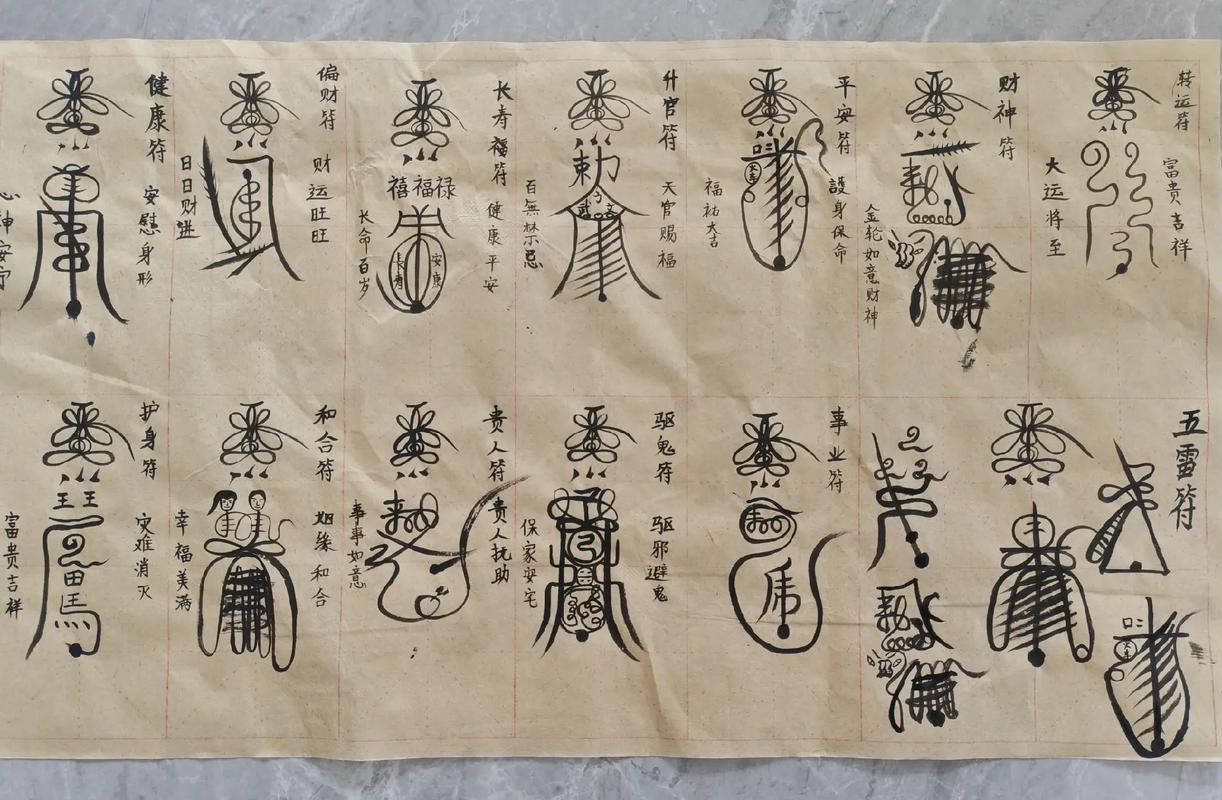 转运符
富贵吉祥
大运将至
财神符
金轮如意财神
平安符
護身保命
福祐大吉
升官符
天官赐福
百無禁忌
长寿福符
禧福禄
健康平安
长命百岁
偏财符
财运旺旺
日日财进
健康符
安慰身形
心神安宁
五雷符
事业符
驱鬼符
驱邪避鬼
保家安宅
贵人符
贵人扶助
事事如意
和合符
姻缘和合
幸福美满
护身符
灾难消灭
富贵吉祥